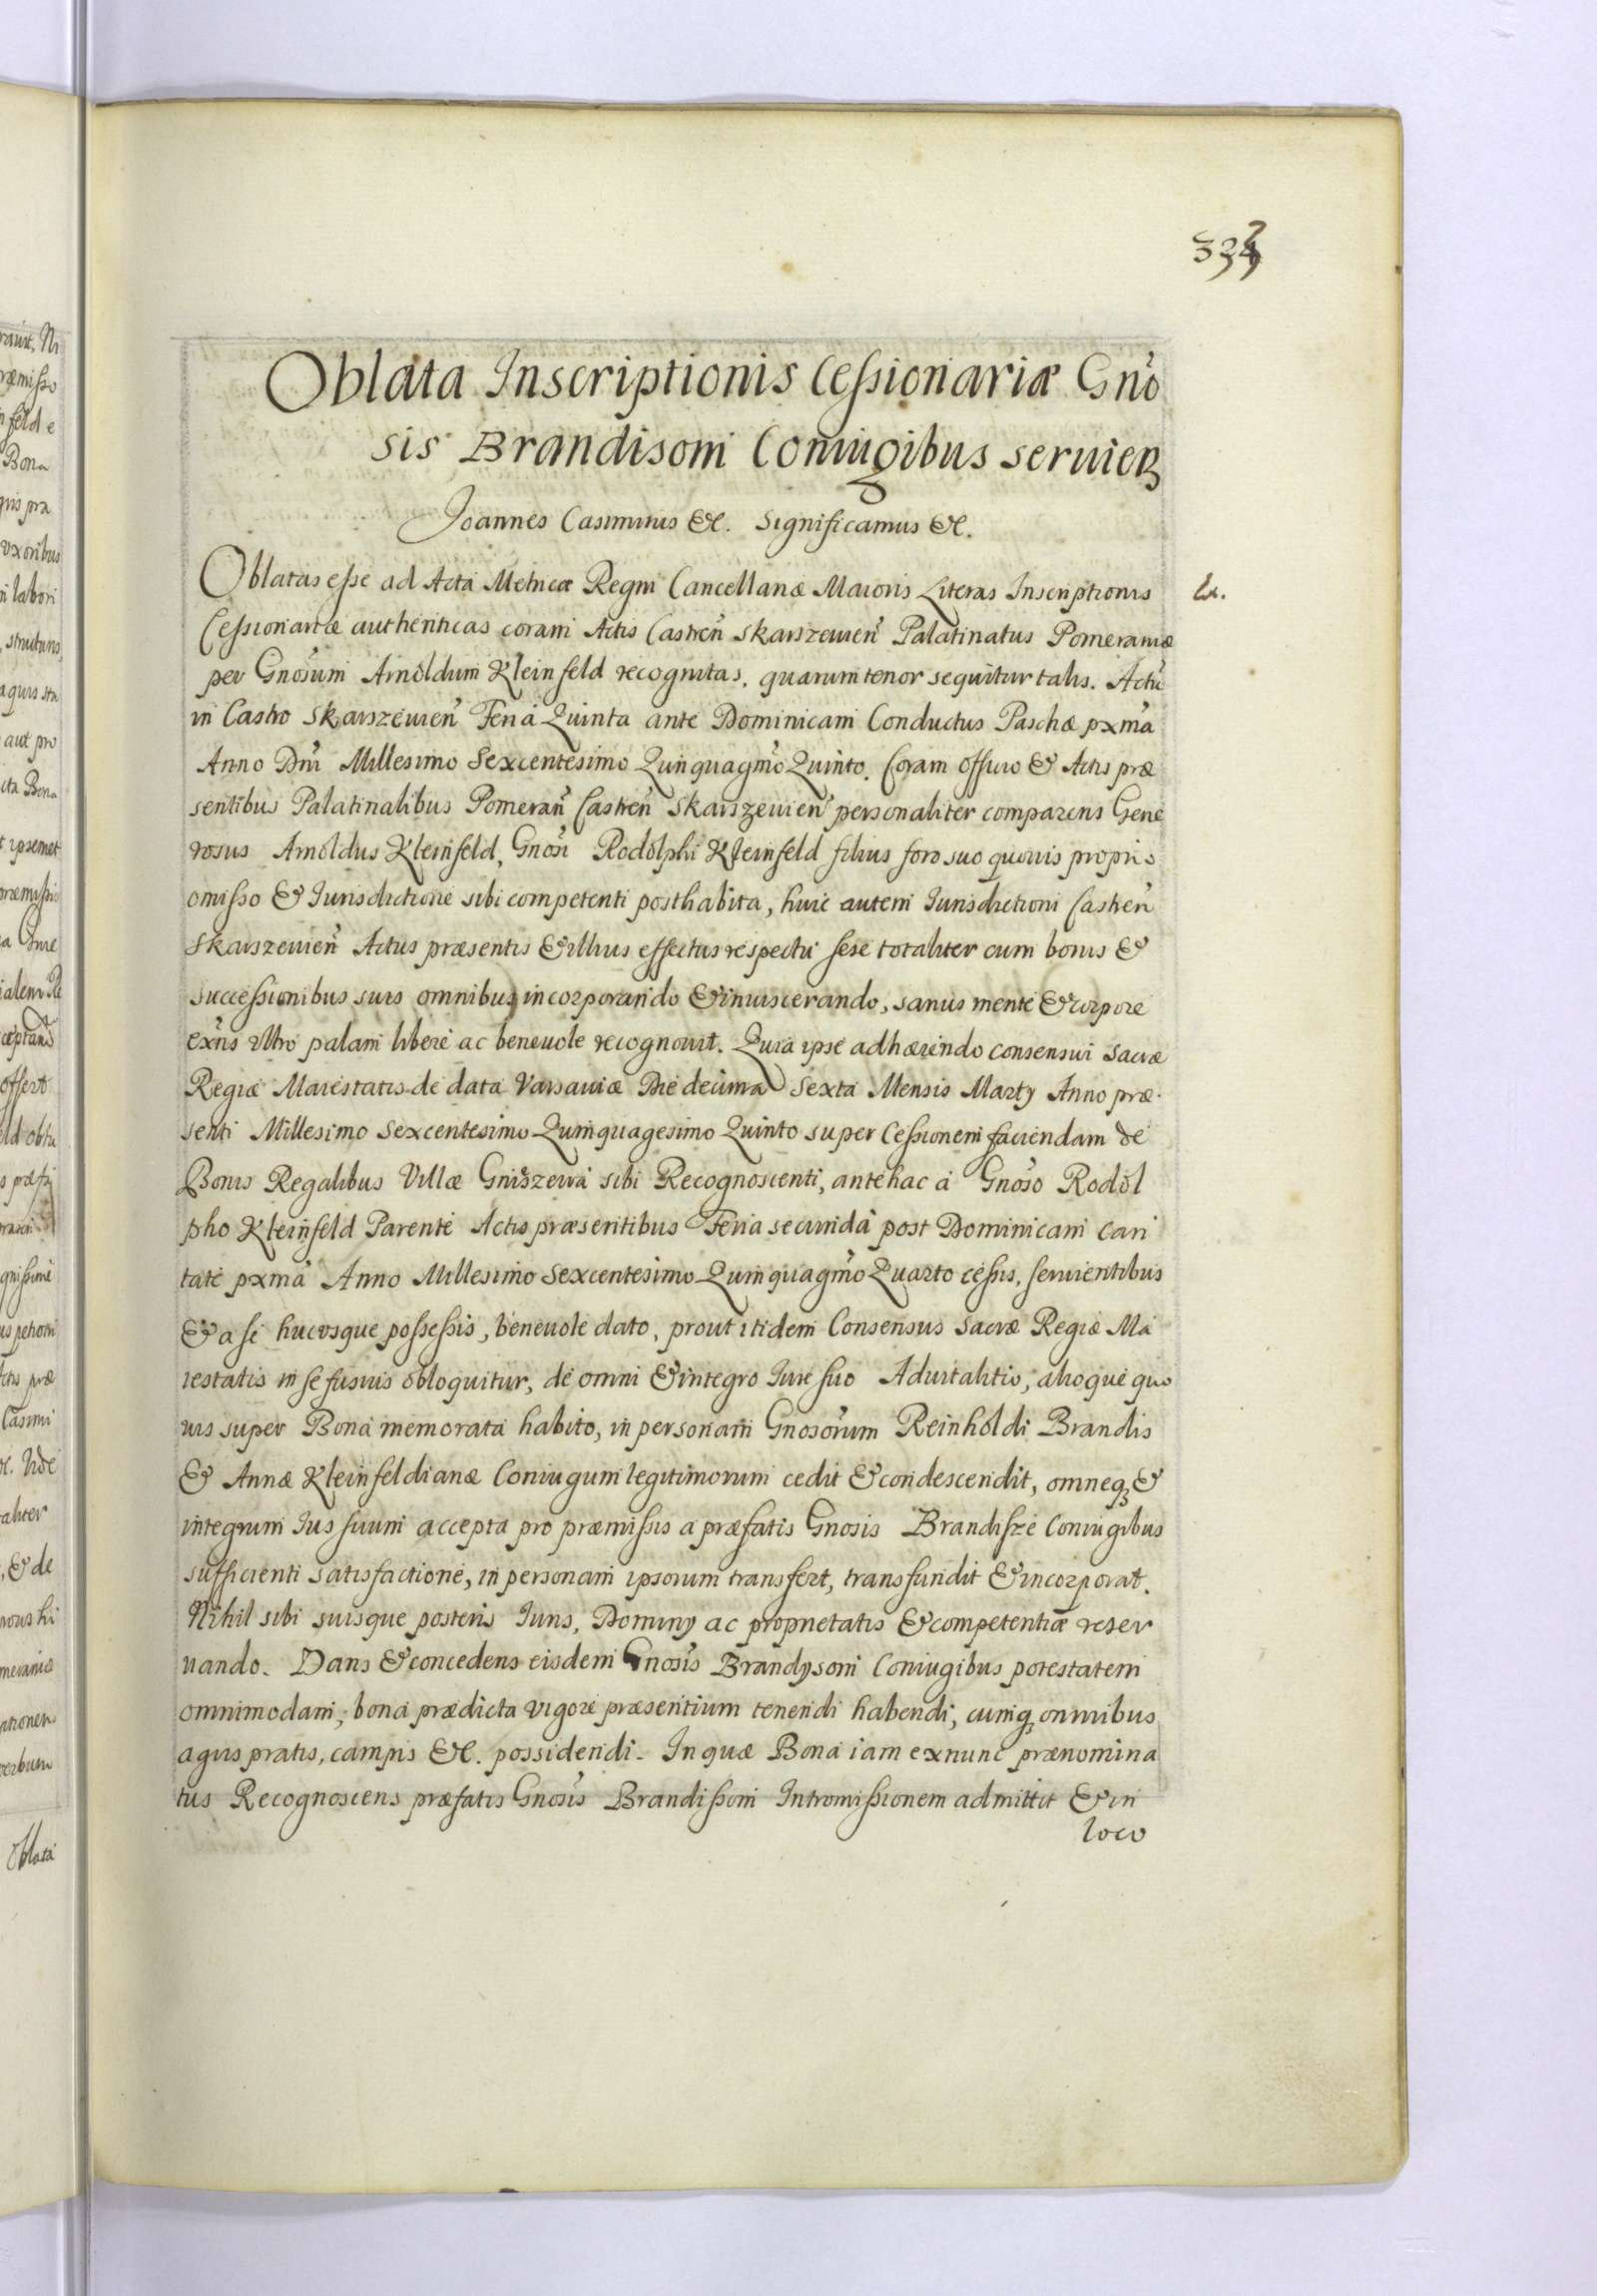 Oblata Inscriptionis Cessionariæ Gnõ
sis Brandisom Coniugibus seruieȝ
Joannes Casimirus &c. Significamus &c.
Oblatas esse ad Acta Metricæ Regni Cancellariæ Maioris Literas Inscriptionis
Ex.
Cessionariæ authenticas coram Actis Castreñ Skarszewieñ Palatinatus Pomeraniæ
per Gnõsum Arnoldum Kleinfeld recognitas, quarum tenor sequitur talis. Actũ
in Castro Skarszewieñ Feria Quinta ante Dominicam Conductus Paschæ pxmã
Anno Dñi Millesimo Sexcentesimo Quinquagmõ Quinto. Coram officio & Actis præ
sentibus Palatinalibus Pomerañ Castreñ Skarszewieñ personaliter comparens Gene
rosus Arnoldus Kleinfeld, Gnõsi Rodolphi Kleinfeld filius foro suo quouis proprio
omisso & Iurisdictione sibi competenti posthabita, huic autem Iurisdictioni Castreñ
Skarszewieñ Actus præsentis & illius effectus respectu sese totaliter cum bonis &
successionibus suis omnibus incorporando & inuiscerando, sanus mente & corpore
exñs vltro palam libere ac beneuole recognouit. Quia ipse adhærendo consensui Sacræ
Regiæ Maiestatis de data Varsauiæ Die decima Sexta Mensis Marty Anno præ
senti Millesimo Sexcentesimo Quinquagesimo Quinto super Cessionem faciendam de
Bonis Regalibus Villæ Gniszewa sibi Recognoscenti, antehac à Gnõso Rodol
pho Kleinfeld Parente Actis præsentibus Feria secunda post Dominicam Cari
tate pxmã Anno Millesimo Sexcentesimo Quinquagmõ Quarto cessis, seruientibus
& a se hucvsque possessis, beneuole dato, prout itidem Consensus Sacræ Regiæ Ma
iestatis in se fusius obloquitur, de omni & integro Iure suo Aduitalitio, alioque quo
uis super Bona memorata habito, in personam Gnosõrum Reinholdi Brandis
& Annæ Kleinfeldianæ Coniugum legitimorum cedit & condescendit, omneqȝ &
integrum Ius suum accepta pro præmissis a præfatis Gnosis Brandisze Coniugibus
sufficienti satisfactione, in personam ipsorum transfert, transfundit & incorporat.
Nihil sibi suisque posteris Iuris, Dominy ac proprietatis & competentiæ reser
uando. Dans & concedens eisdem Gnosĩs Brandysom Coniugibus potestatem
omnimodam, bona prædicta vigore præsentium tenendi habendi, cumqȝ omnibus
agris pratis, campis &c. possidendi. In quæ Bona iam exnunc prænomina
tus Recognoscens præfatis Gnosĩs Brandissom Intromissionem admittit & in
loco